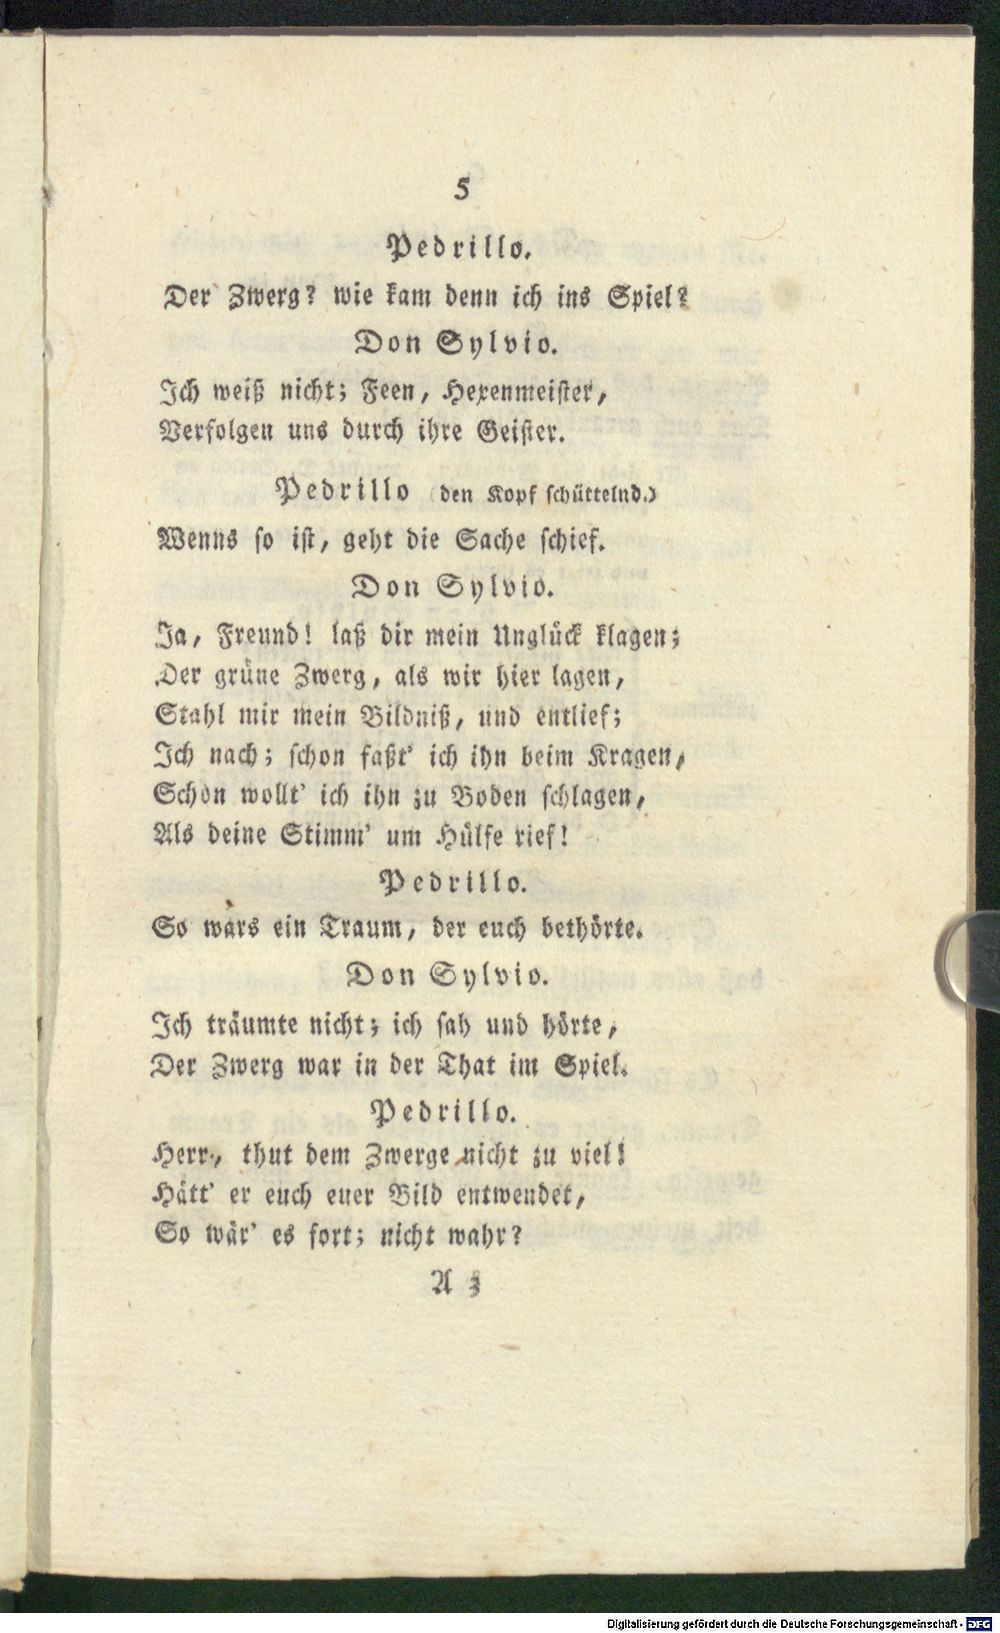 5
Pedrillo.
Der Zwerg? wie kam denn ich ins Spiel?
Don Sylvio.
Ich weiß nicht; Feen, Hexenmeister,
Verfolgen uns durch ihre Geister.
Pedrillo (den Kopf schüttelnd.)
Wenns so ist, geht die Sache schief.
Don Sylvio.
Ja, Freund! laß dir mein Unglück klagen;
Der grüne Zwerg, als wir hier lagen,
Stahl mir mein Bildniß, und entlief;
Ich nach; schon faßt' ich ihn beim Kragen,
Schon wollt' ich ihn zu Boden schlagen,
Als deine Stimm' um Hülfe rief!
Pedrillo.
So wärs ein Traum, der euch bethörte.
Don Sylvio.
Ich träumte nicht; ich sah und hörte,
Der Zwerg war in der That im Spiel.
Pedrillo.
Herr, thut dem Zwerge nicht zu viel!
Hätt' er euch euer Bild entwendet,
So wär' es fort; nicht wahr?
A 3
Digitalisierung gefördert durch die Deutsche Forschungsgemeinschaft - DFG